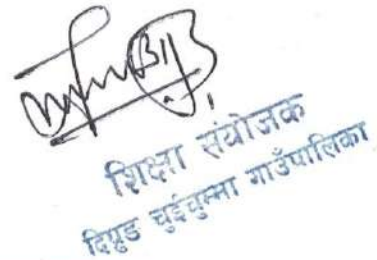 शिक्षा संयोजक
दिप्रुङ चुईचुम्मा गाउँपालिका